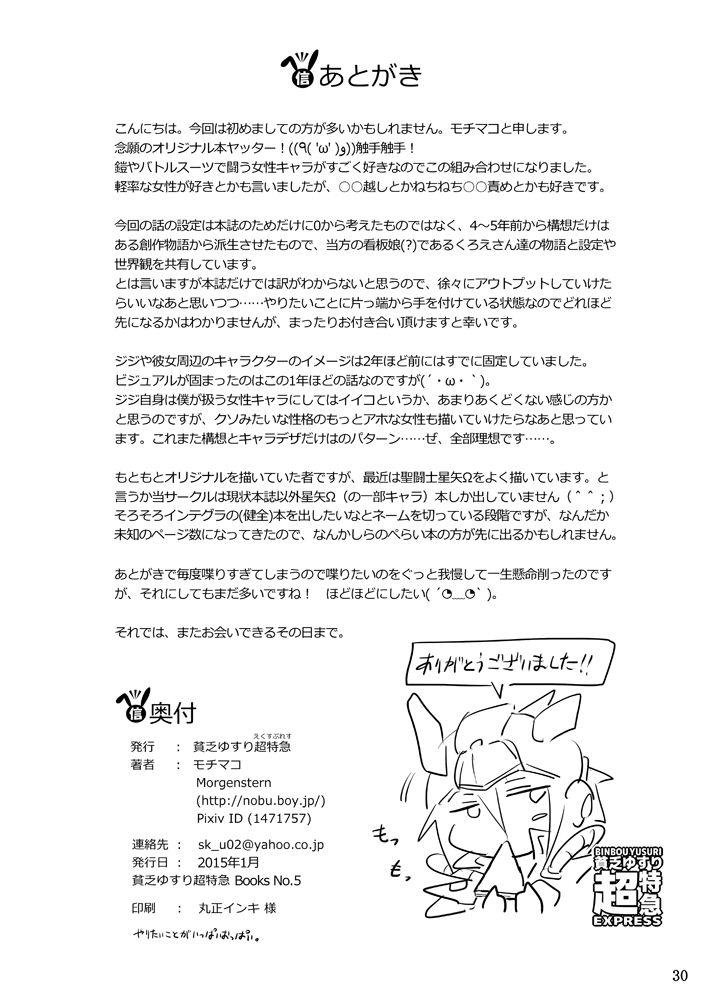 信 あとがき
こんにちは。今回は初めましての方が多いかもしれません。モチマコと申します。
念願のオリジナル本ヤッター！((٩( 'ω' )و))触手触手！
鎧やバトルスーツで闘う女性キャラがすごく好きなのでこの組み合わせになりました。
軽率な女性が好きとかも言いましたが、○○越しとかねちねち○○責めとかも好きです。
今回の話の設定は本誌のためだけに0から考えたものではなく、4～5年前から構想だけは
ある創作物語から派生させたもので、当方の看板娘(?)であるくろえさん達の物語と設定や
世界観を共有しています。
とは言いますが本誌だけでは訳がわからないと思うので、徐々にアウトプットしていけた
らいいなあと思いつつ……やりたいことに片っ端から手を付けている状態なのでどれほど
先になるかはわかりませんが、まったりお付き合い頂けますと幸いです。
ジジや彼女周辺のキャラクターのイメージは2年ほど前にはすでに固定していました。
ビジュアルが固まったのはこの1年ほどの話なのですが(´・ω・｀)。
ジジ自身は僕が扱う女性キャラにしてはイイコというか、あまりあくどくない感じの方か
と思うのですが、クソみたいな性格のもっとアホな女性も描いていけたらなあと思ってい
ます。これまた構想とキャラデザだけはのパターン……ぜ、全部理想です……。
もともとオリジナルを描いていた者ですが、最近は聖闘士星矢Ωをよく描いています。と
言うか当サークルは現状本誌以外星矢Ω（の一部キャラ）本しか出していません（＾＾；）
そろそろインテグラの(健全)本を出したいなとネームを切っている段階ですが、なんだか
未知のページ数になってきたので、なんかしらのぺらい本の方が先に出るかもしれません。
あとがきで毎度喋りすぎてしまうので喋りたいのをぐっと我慢して一生懸命削ったのです
が、それにしてもまだ多いですね！　ほどほどにしたい( ´◔‿◔` )。
それでは、またお会いできるその日まで。
ありがとうございました!!
信 奥付
えくすぷれす
発行　：　貧乏ゆすり超特急
著者　：　モチマコ
Morgenstern
(http://nobu.boy.jp/)
Pixiv ID (1471757)
連絡先：　sk_u02@yahoo.co.jp
発行日：　2015年1月
貧乏ゆすり超特急 Books No.5
印刷　：　丸正インキ 様
やりたいことがいっぱいおっぱい。
もっ
もっ
BINBOUYUSURI
貧乏ゆすり
超特急
EXPRESS
30